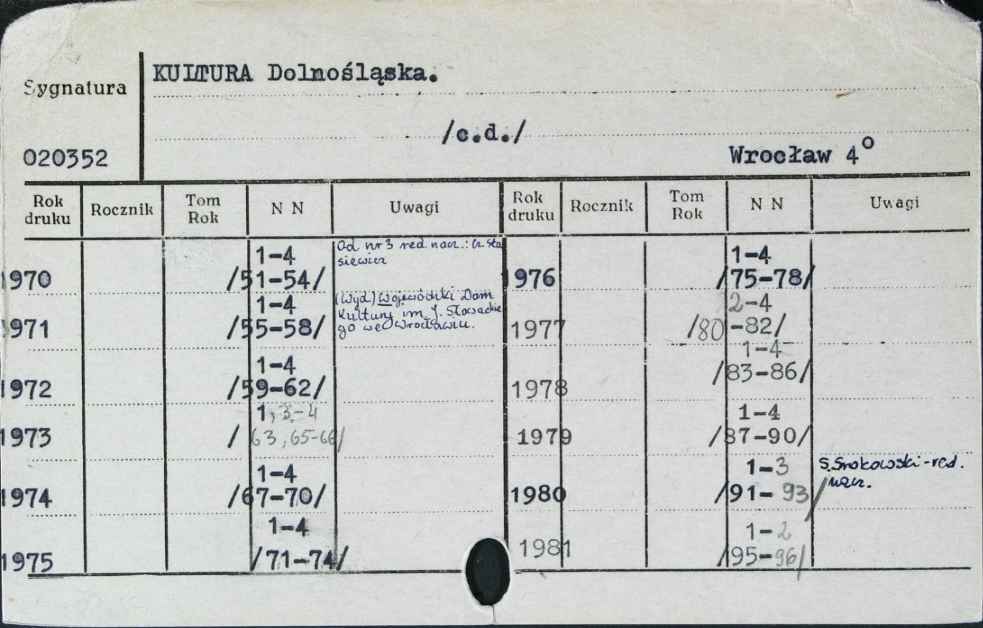 Sygnatura
KULTURA Dolnośląska.
/c.d./
020352
Wrocław 4°
Rok druku Rocznik Tom Rok N N Uwagi Rok druku Rocznik Tom Rok N N Uwagi
1970 1-4 /51-54/ Od nr 3 red. nacz.:
siewicz
1971 1-4 /55-58/ (Wyd.) Wojewódzki Dom
Kultury im. J. Słowackie
go we Wrocławiu.
1972 1-4 /59-62/
1973 1, 3-4 / 63, 65-66/
1974 1-4 /67-70/
1975 1-4 /71-74/
1976 1-4 /75-78/
1977 2-4 /80-82/
1978 1-4 /83-86/
1979 1-4 /87-90/
1980 1-3 /91-93/ S. Srokowski-red.
nacz.
1981 1-2 /95-96/